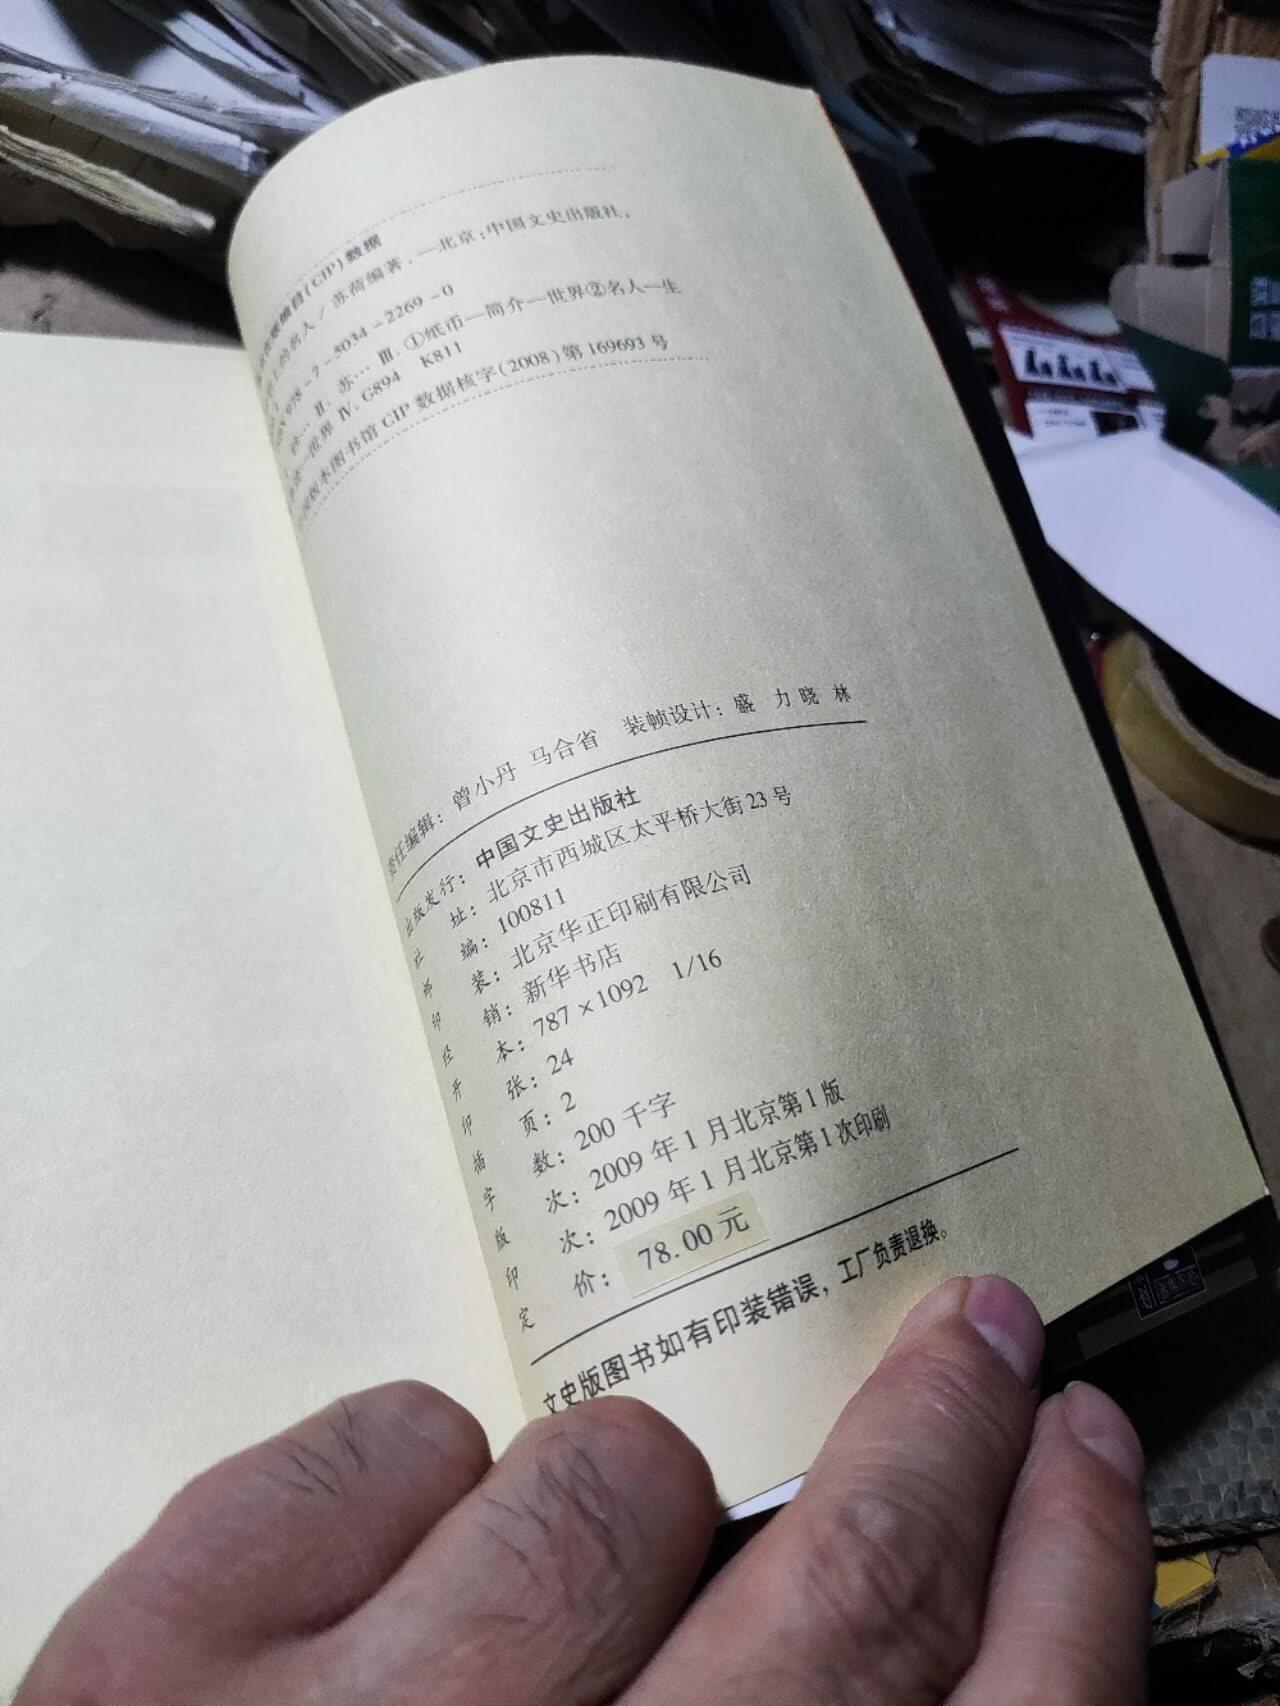 编目(CIP)数据
上的名人 / 苏荷编著. —北京：中国文史出版社，
978-7-5034-2269-0
Ⅱ. 苏… Ⅲ. ①纸币—简介—世界②名人—生
世界 Ⅳ. G894 K811
版本图书馆 CIP 数据核字(2008)第 169693 号
责任编辑：曾小丹 马合省 装帧设计：盛 力 晓 林
出版发行：中国文史出版社
社 址：北京市西城区太平桥大街 23 号
邮 编：100811
印 装：北京华正印刷有限公司
经 销：新华书店
开 本：787×1092 1/16
印 张：24
插 页：2
字 数：200 千字
版 次：2009 年 1 月北京第 1 版
印 次：2009 年 1 月北京第 1 次印刷
定 价：78.00 元
文史版图书如有印装错误，工厂负责退换。